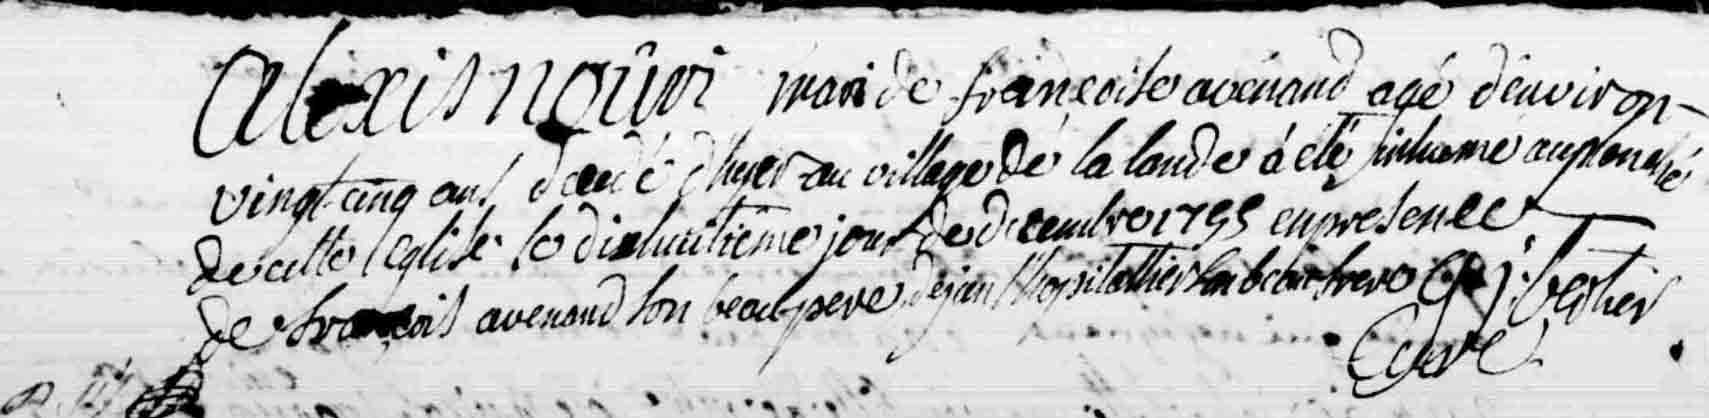 Alexis noûri mari de francoise avenand agé denviron
vingt cinq ans décédé d'hyer au village de la lande à été inhumé
de cette église le dixhuitième jour de decembre 1755 en presence
de françois avenand son beaupere, de jan l'hopitallier son beau frere G J bertier
Curé